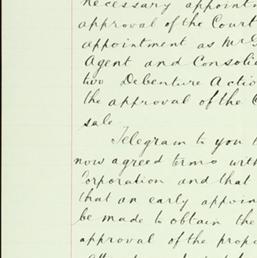 necessary appoint
approval of the Court
appointment as Mr G
Agent and Consoli
two Debenture Actio
the approval of the C
sale.
Telegram to you t
now agreed terms with
Corporation and that
that an early appoin
be made to obtain the
approval of the propo